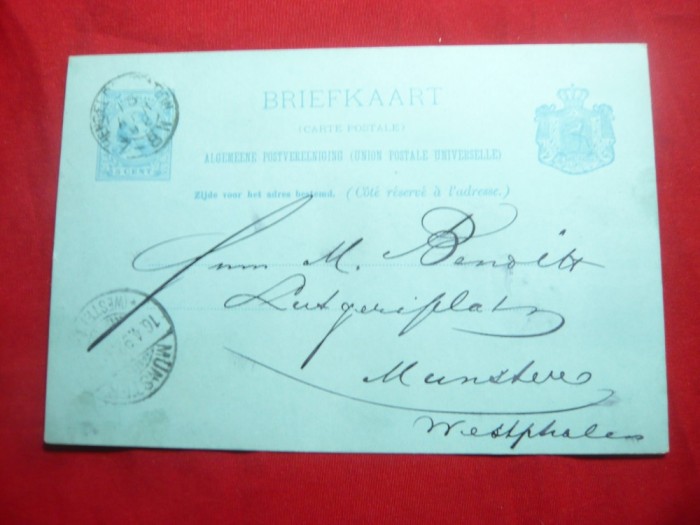 BRIEFKAART
(CARTE POSTALE)
ALGEMEENE POSTVEREENIGING (UNION POSTALE UNIVERSELLE)
Zijde voor het adres bestemd. (Côté réservé à l'adresse.)
5 CENT
M. Benoitt
Lutgeriplatz
Munster
Westphalen